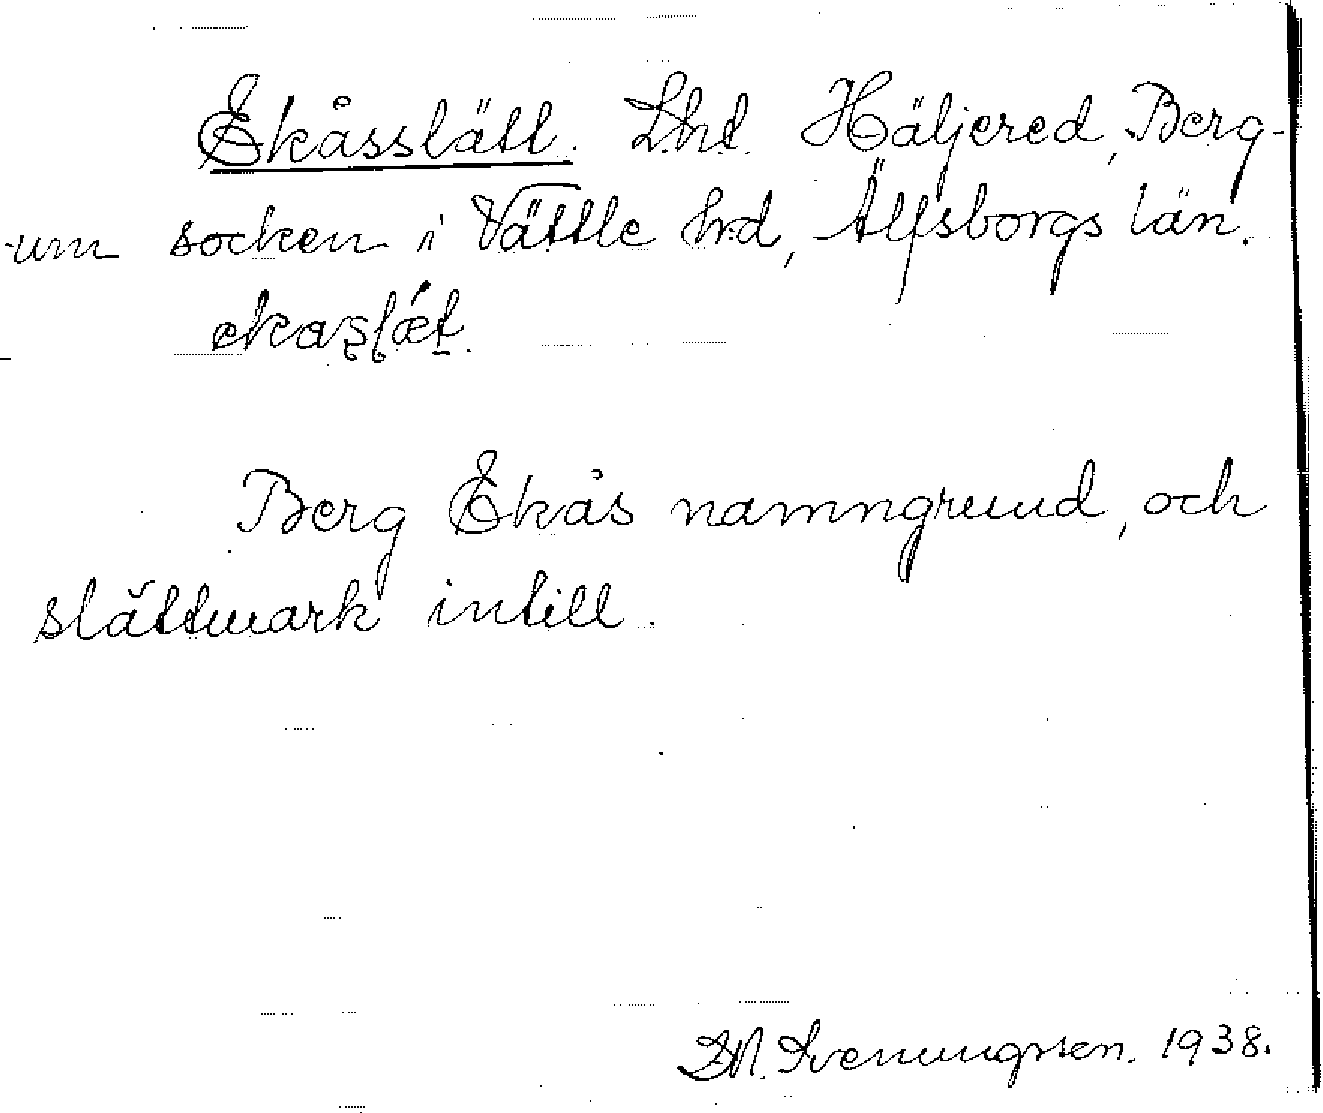 Ekåsslätt. Lht. Häljered, Berg-
um socken i Vättle hrd, Älfsborgs län.
ekaslǽt.
Berg Ekås namngrund, och
slättmark intill.
Sveningsson. 1938.